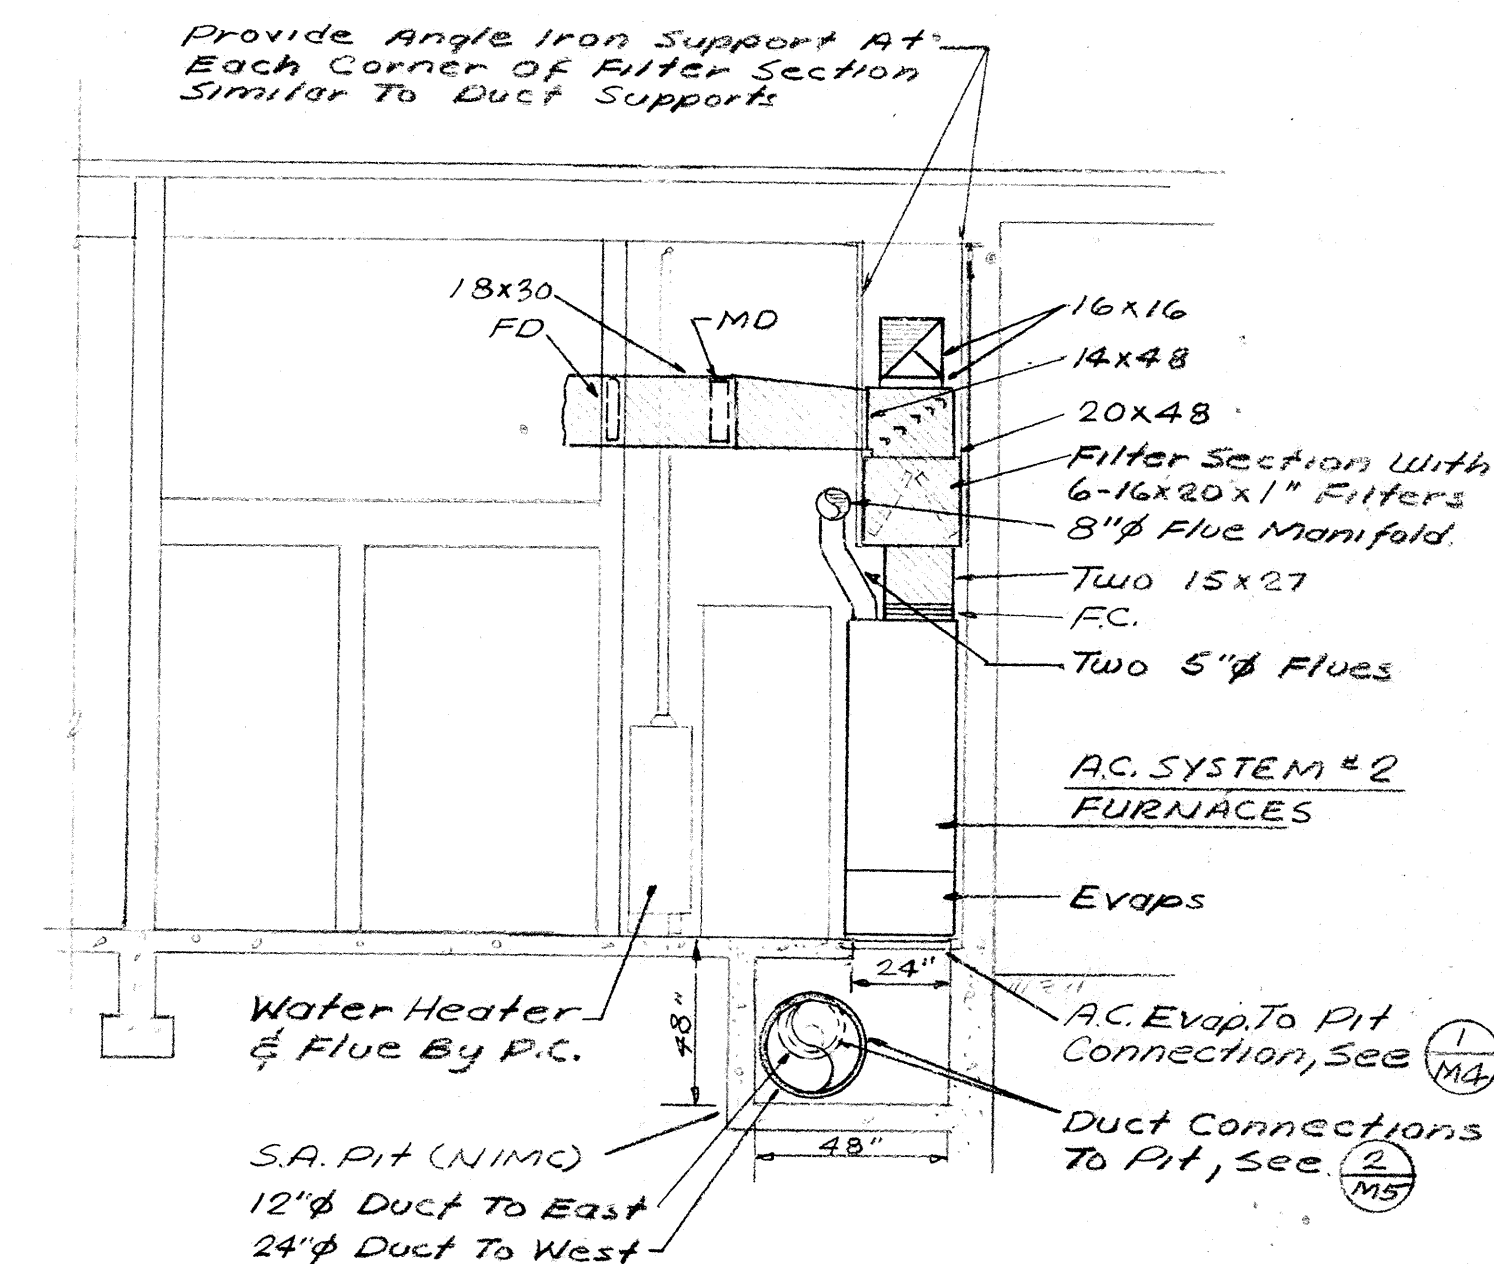 Provide Angle Iron Support At
Each Corner Of Filter Section
Similar To Duct Supports
18x30
FD
MD
16x16
14x48
20x48
Filter Section With
6-16x20x1" Filters
8"ø Flue Manifold.
Two 15x27
F.C.
Two 5"ø Flues
A.C. SYSTEM #2
FURNACES
Evaps
24"
48"
Water Heater
& Flue By P.C.
A.C. Evap. To Pit
Connection, See 1
M4
Duct Connections
To Pit, See 2
M5
48"
S.A. Pit (NIMC)
12"ø Duct To East
24"ø Duct To West